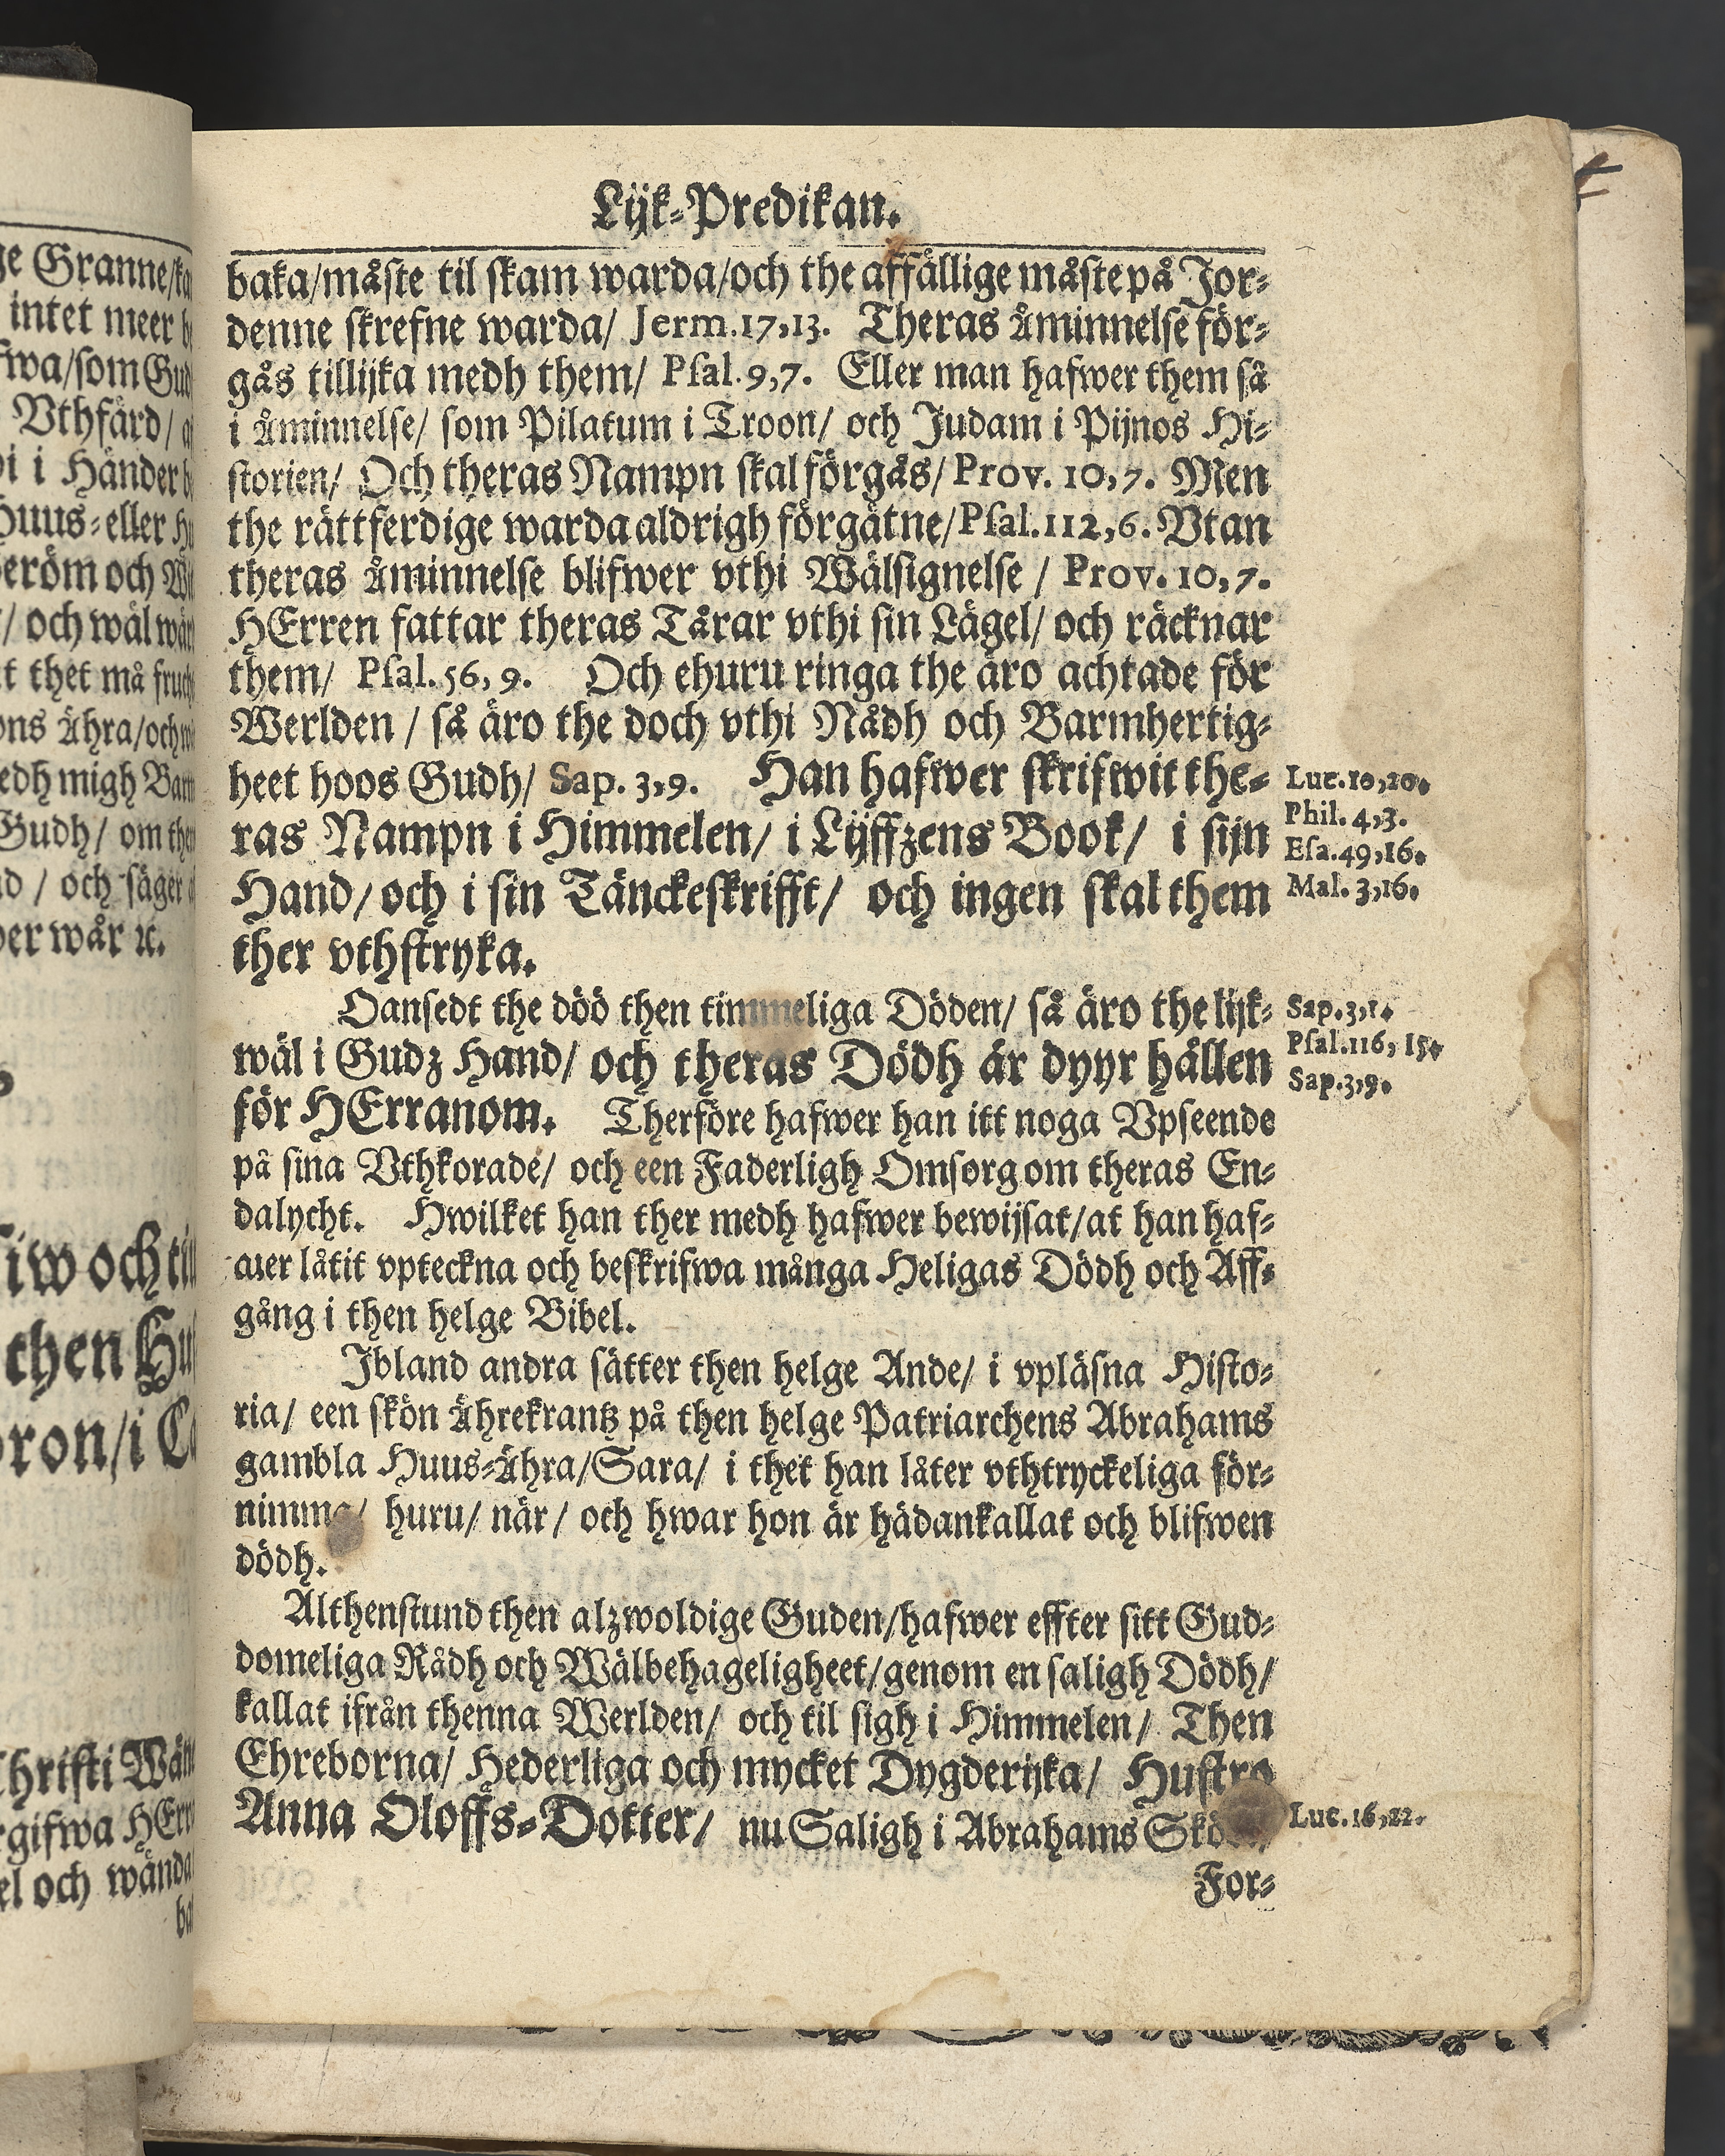 Lijk-Predikan.
baka/måste til skam warda/och the affällige måste på Jor-
denne skrefne warda/ Jerm.17,13. Theras åminnelse för-
gås tillijka medh them/ Psal.9,7. Eller man hafwer them så
i åminnelse/ som Pilatum i Troon/ och Judam i Pijnos Hi-
storien/ Och theras Nampn skal förgås/Prov. 10,7. Men
the rättferdige warda aldrigh förgätne/Psal.112,6. Vtan
theras åminnelse blifwer vthi Wälsignelse / Prov. 10,7.
HErren fattar theras Tårar vthi sin Lägel/ och räcknar
them/ Psal.56, 9. Och ehuru ringa the äro achtade för
Werlden / så äro the doch vthi Nådh och Barmhertig-
heet hoos Gudh/ Sap. 3,9. Han hafwer skrifwit the-
ras Nampn i Himmelen/ i Lijffzens Book/ i sijn
Hand/ och i sin Tänckeskrifft/ och ingen skal them
ther vthstryka.
Luc.10,20.
Phil. 4,3.
Esa.49,16.
Mal. 3,16.
Oansedt the döö then timmeliga Döden/ så äro the lijk-
wäl i Gudz Hand/ och theras Dödh är dyyr hållen
för HErranom. Therföre hafwer han itt noga Vpseende
på sina Vthkorade/ och een Faderligh Omsorg om theras En-
dalycht. Hwilket han ther medh hafwer bewijsat/at han haf-
wer låtit vpteckna och beskrifwa många Heligas Dödh och Aff-
gång i then helge Bibel.
Sap.3,1.
Psal.116, 15.
Sap.3,9.
Jbland andra sätter then helge Ande/ i vpläsna Histo-
ria/ een skön Ährekrantz på then helge Patriarchens Abrahams
gambla Huus-Ähra/Sara/ i thet han låter vthtryckeliga för-
nimma/ huru/ när/ och hwar hon är hädankallat och blifwen
dödh.
Althenstund then alzwoldige Guden/hafwer effter sitt Gud-
domeliga Rådh och Wälbehageligheet/genom en saligh Dödh/
kallat ifrån thenna Werlden/ och til sigh i Himmelen/ Then
Ehreborna/ Hederliga och mycket Dygderijka/ Hustro
Anna Oloffs-Dotter/ nu Saligh i Abrahams
Luc.16,22.
For-
ge Granne/
intet meer
fwa/som Gud
Vthfärd/
i Händer
Huus-eller
beröm och
/ och wäl
thet må
Ähra/och
medh migh
Gudh/ om
/ och säger
wår ꝛc.
och
then
/i
Christi
gifwa
och wända